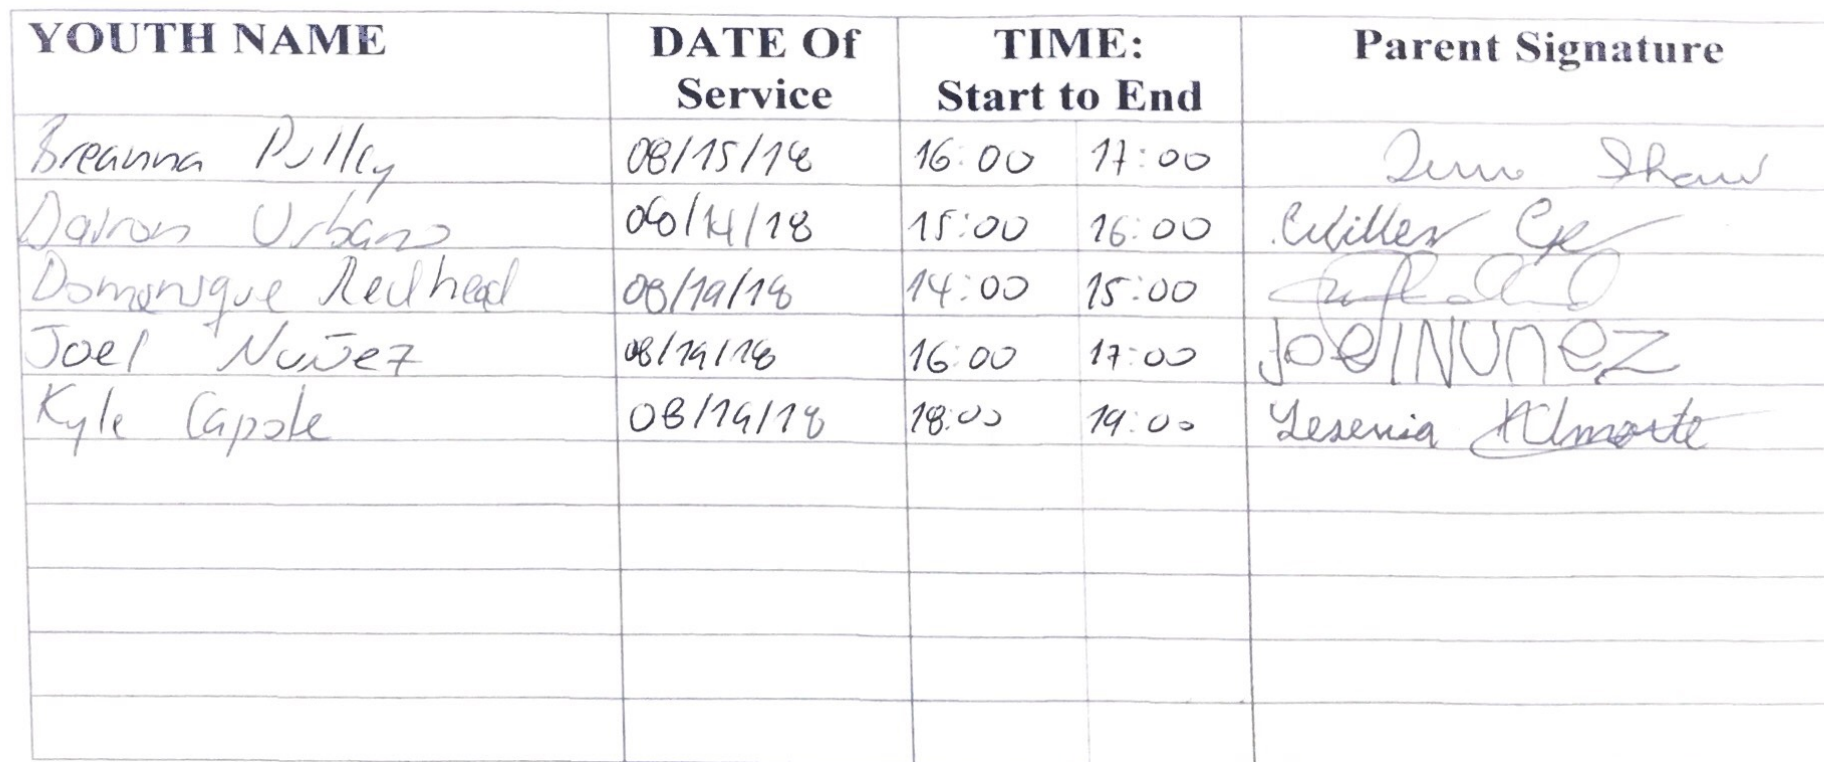 YOUTH NAME DATE Of Service TIME: Start to End Parent Signature
Breanna Pulley 08/15/18 16:00 17:00 Shaw
Dairon Urbano 08/14/18 15:00 16:00
Domenique Redhead 08/19/18 14:00 15:00
Joel Nuñez 08/19/18 16:00 17:00 Joel Nunez
Kyle Capote 08/19/18 18:00 19:00 Yesenia Almonte